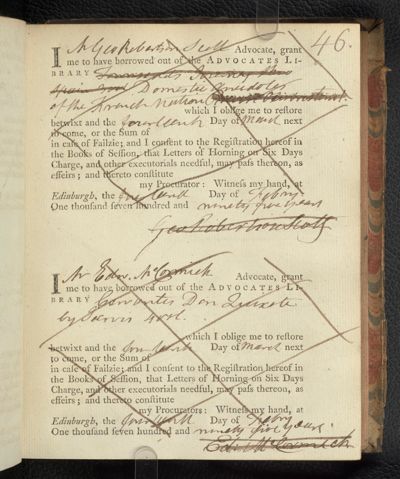 46.
I Mr Geo Robertson Scott Advocate, grant
me to have borrowed out of the ADVOCATES LI-
BRARY Townsends Journey thro
Spain Domestic Anecdotes
of the French Nation
which I oblige me to restore
betwixt and the fourteenth Day of March next
to come, or the Sum of
in case of Failzie; and I consent to the Registration hereof in
the Books of Session, that Letters of Horning on Six Days
Charge, and other executorials needful, may pass thereon, as
effeirs; and thereto constitute
my Procurator: Witness my hand, at
Edinburgh, the Day of Febry
One thousand seven hundred and ninety five years
Geo Robertson Scott
I Mr Edw. McCormick Advocate, grant
me to have borrowed out of the ADVOCATES LI-
BRARY Cervantes Don Quixote
by Jarvis 4 vol.
which I oblige me to restore
betwixt and the Day of March next
to come, or the Sum of
in case of Failzie; and I consent to the Registration hereof in
the Books of Session, that Letters of Horning on Six Days
Charge, and other executorials needful, may pass thereon, as
effeirs; and thereto constitute
my Procurators: Witness my hand, at
Edinburgh, the fourteenth Day of Febry
One thousand seven hundred and ninety five years.
Edw McCormick